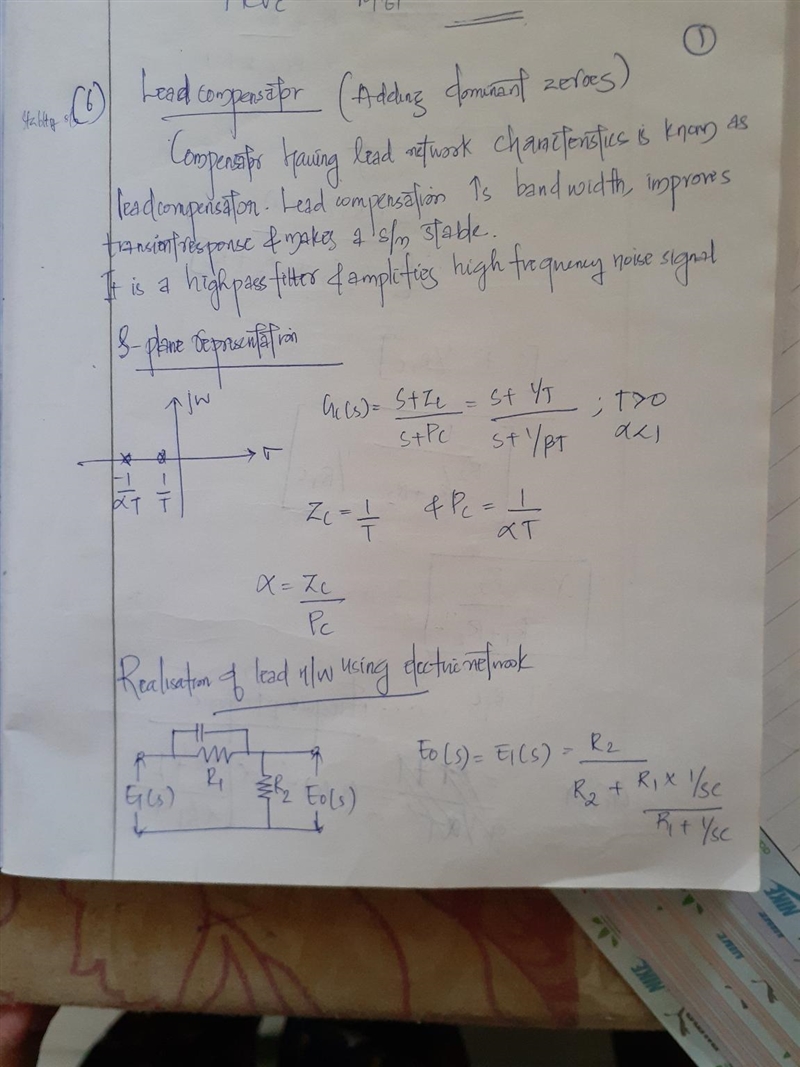 (6) Lead compensator (Adding dominant zeroes)
①
Compensator having lead network charactenstics is known as
leadcompensator. Lead compensation ↑s bandwidth, improves
transient response & makes a s/m stable.
It is a highpass filter & amplifies high frequency noise signal
S-plane representation
jw
σ
-1/αT 1/T
Gc(s) = S+Zc/S+Pc = S+ 1/T / S+ 1/βT ; T>0
α<1
Zc = 1/T & Pc = 1/αT
α = Zc/Pc
Realisation of lead n/w using electric network
R1
E1(s) R2 E0(s)
E0(s) = E1(s) = R2 / R2 + R1 x 1/SC / R1 + 1/SC
NIKE
NIKE